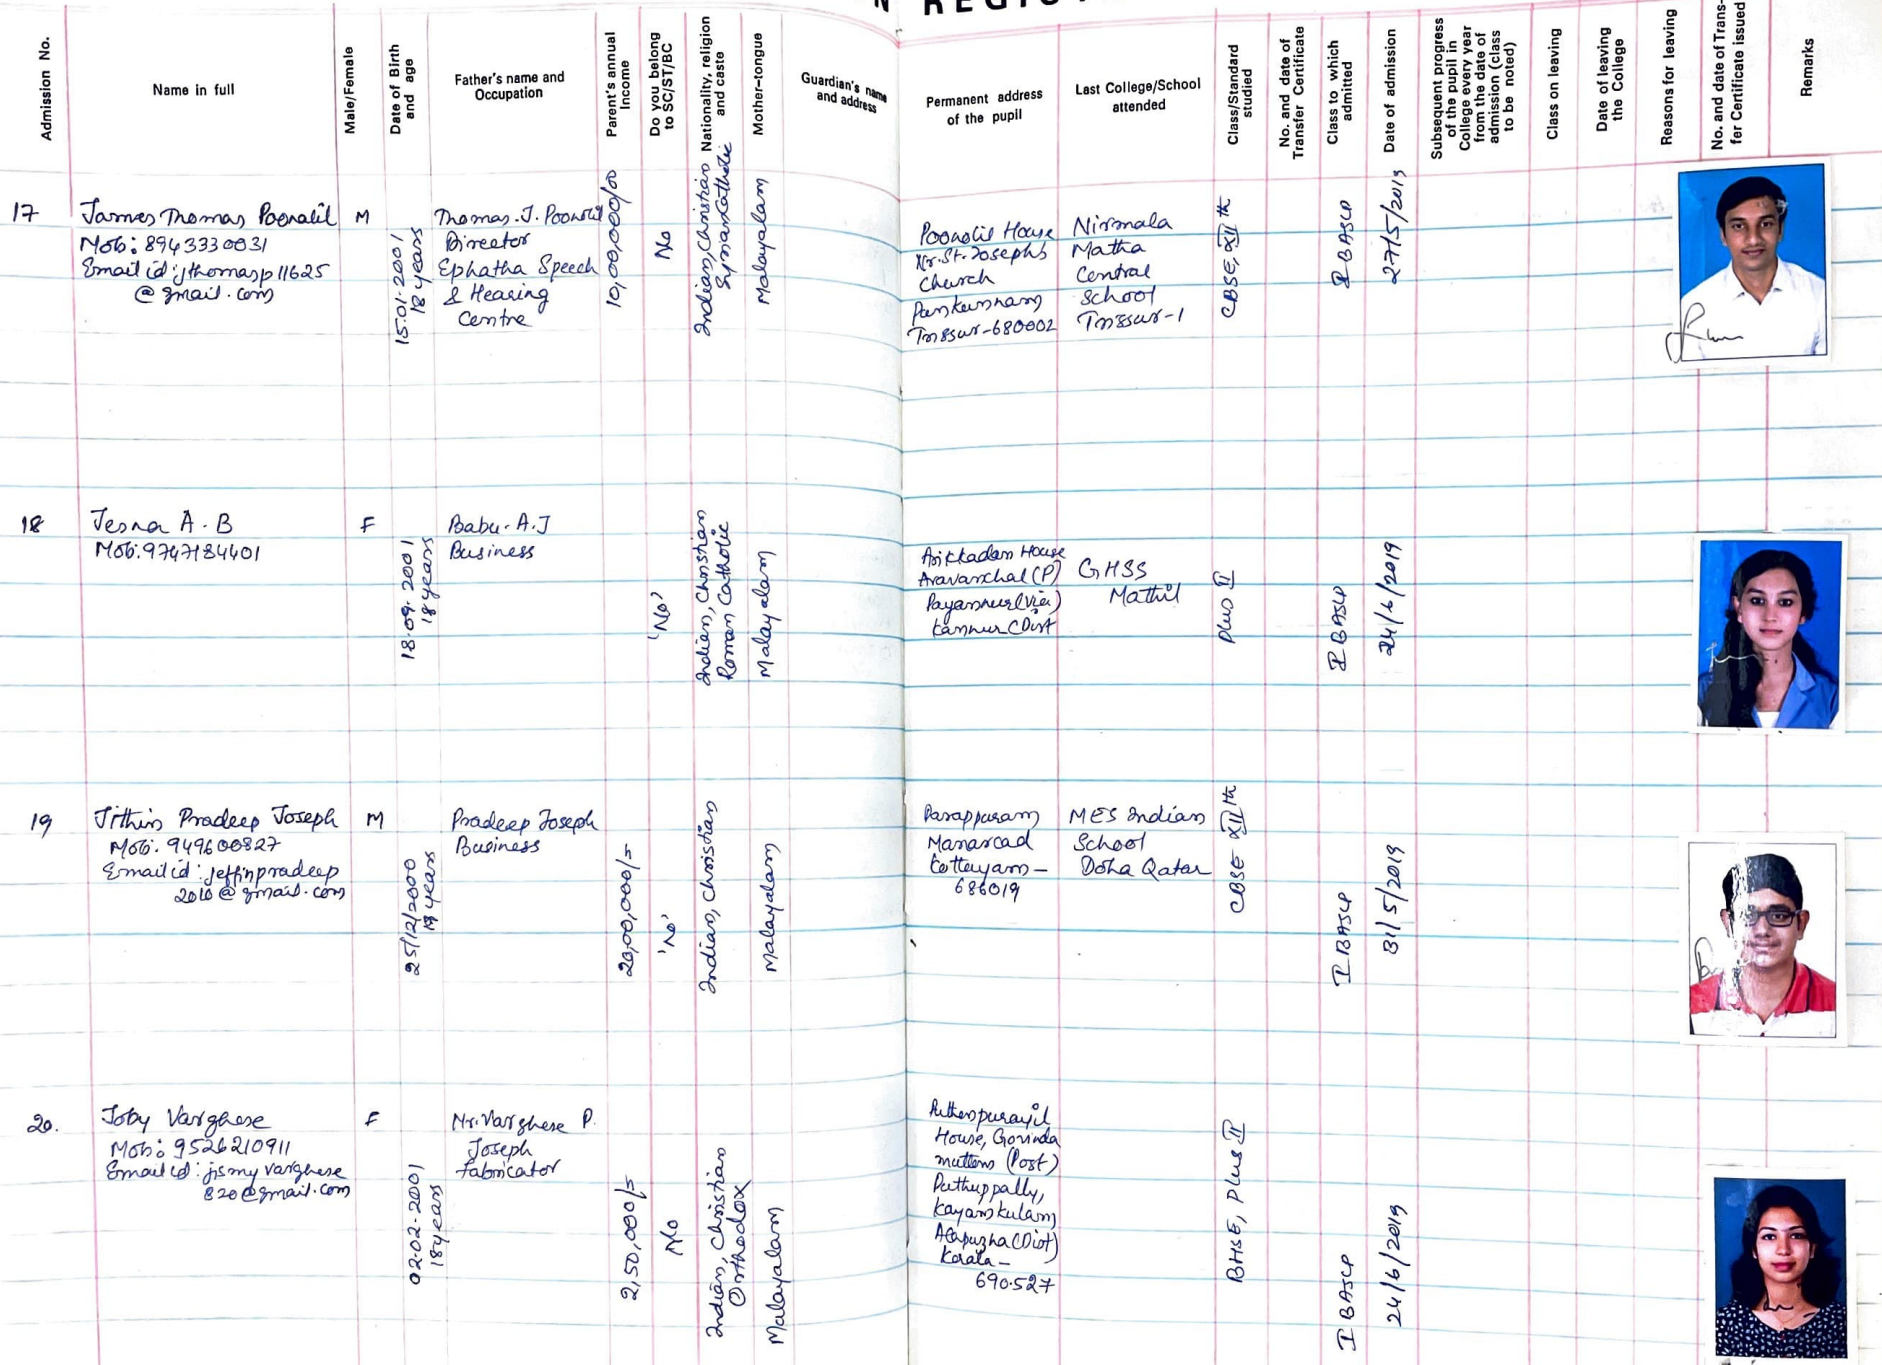 REGIS
Admission No.
Name in full
Male/Female
Date of Birth
and age
Father's name and
Occupation
Parent's annual
Income
Do you belong
to SC/ST/BC
Nationality, religion
and caste
Mother-tongue
Guardian's name
and address
Permanent address
of the pupil
Last College/School
attended
Class/Standard
studied
No. and date of
Transfer Certificate
Class to which
admitted
Date of admission
Subsequent progress
of the pupil in
College every year
from the date of
admission (class
to be noted)
Class on leaving
Date of leaving
the College
Reasons for leaving
No. and date of Trans-
fer Certificate issued
Remarks
17
James Thomas Poonolil
Mob: 8943330031
Email id: jthomasp11625
@gmail.com
M
15.01.2001
18 years
Thomas.J. Poonolil
Director
Ephatha Speech
& Hearing
Centre
10,00,000/00
No
Indian, Christian
Syrian Catholic
Malayalam
Poonolil House
Nr. St. Josephs
Church
Pankunnam
Trissur-680002
Nirmala
Matha
Central
School
Trissur-1
CBSE, XII th
I BASLP
27/5/2019
18
Jesna A.B
Mob: 9747184401
F
18.09.2001
18 years
Babu.A.J
Business
'No'
Indian, Christian
Roman Catholic
Malayalam
Arikkadan House
Aravanchal (P)
Payannur (via)
Kannur (Dist
GHSS
Mathil
Plus II
I BASLP
24/6/2019
19
Jithin Pradeep Joseph
Mob: 949600827
Email id: jeffinpradeep
2010@gmail.com
M
25/12/2000
years
Pradeep Joseph
Business
20,00,000/=
'No'
Indian, Christian
Malayalam
Parappuram
Manarcad
Kottayam-
686019
MES Indian
School
Doha Qatar
CBSE XII th
I BASLP
31/5/2019
20.
Joby Varghese
Mob: 9526210911
Email id: jismyvarghese
820@gmail.com
F
02.02.2001
18 years
Mr. Varghese P.
Joseph
Fabricator
2,50,000/=
No
Indian, Christian
Orthodox
Malayalam
Puthenpurayil
House, Govinda
muttom (Post)
Puthuppally,
Kayamkulam
Alapuzha (Dist)
Kerala-
690.527
BHSE, Plus II
I BASLP
24/6/2019